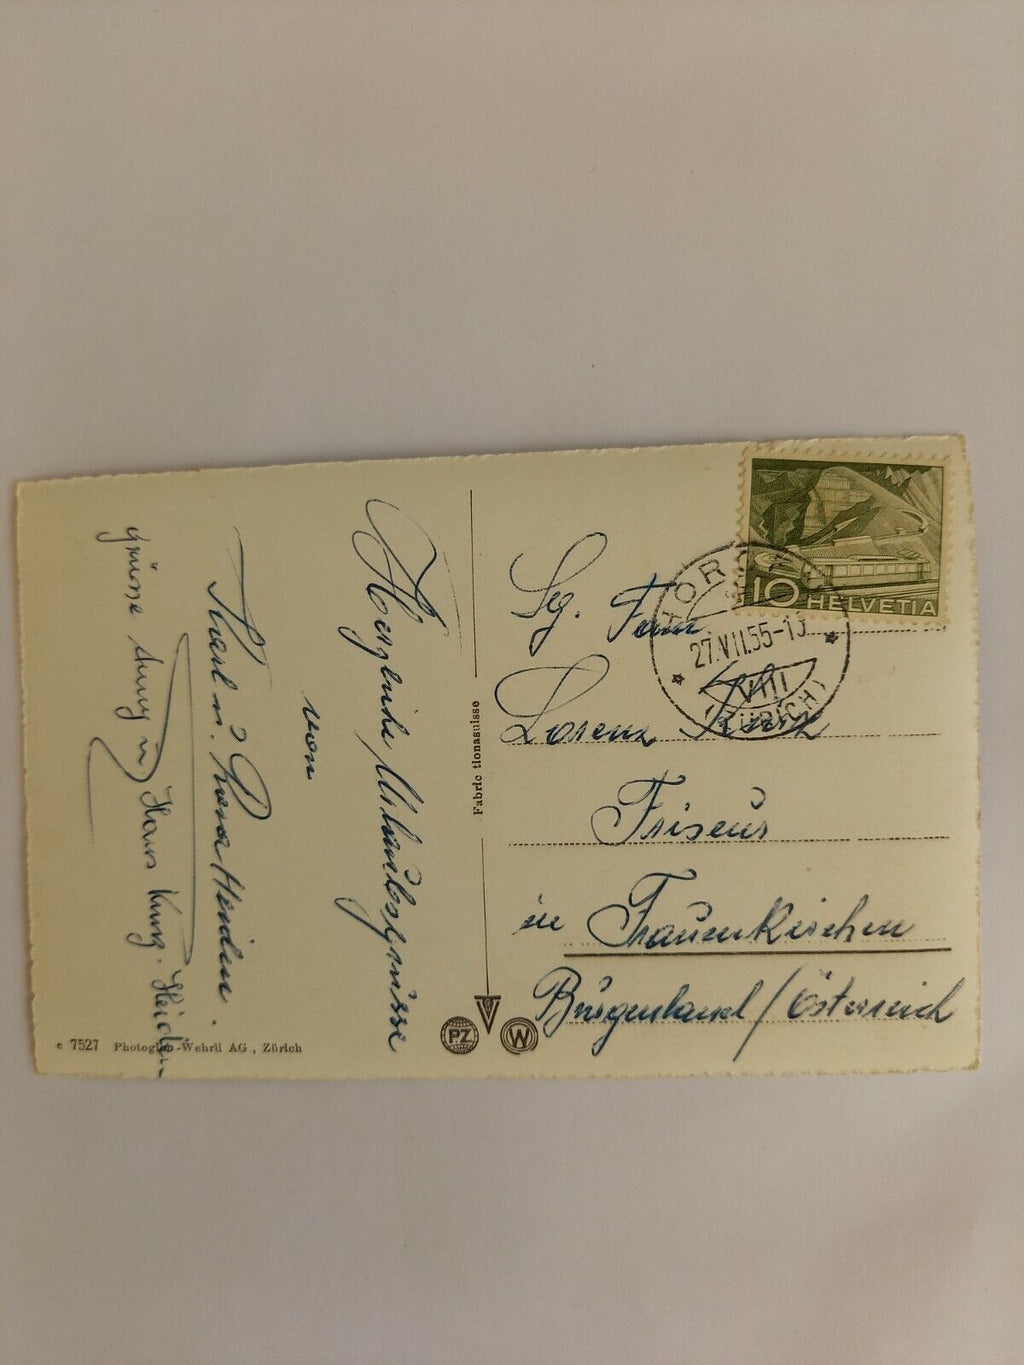 Herzliche Urlaubsgrüsse
von
Karl u. Heidin.
Grüsse
Hans Küng. Heiden
e 7527 Photoglob-Wehrli AG, Zürich
Fabric tionasuisse
PZ
W
10 HELVETIA
HORGEN
27.VII.55-13
VIII
(ZÜRICH)
Sg. Fam
Lorenz
Friseur
in Frauenkirchen
Burgenland / Österreich